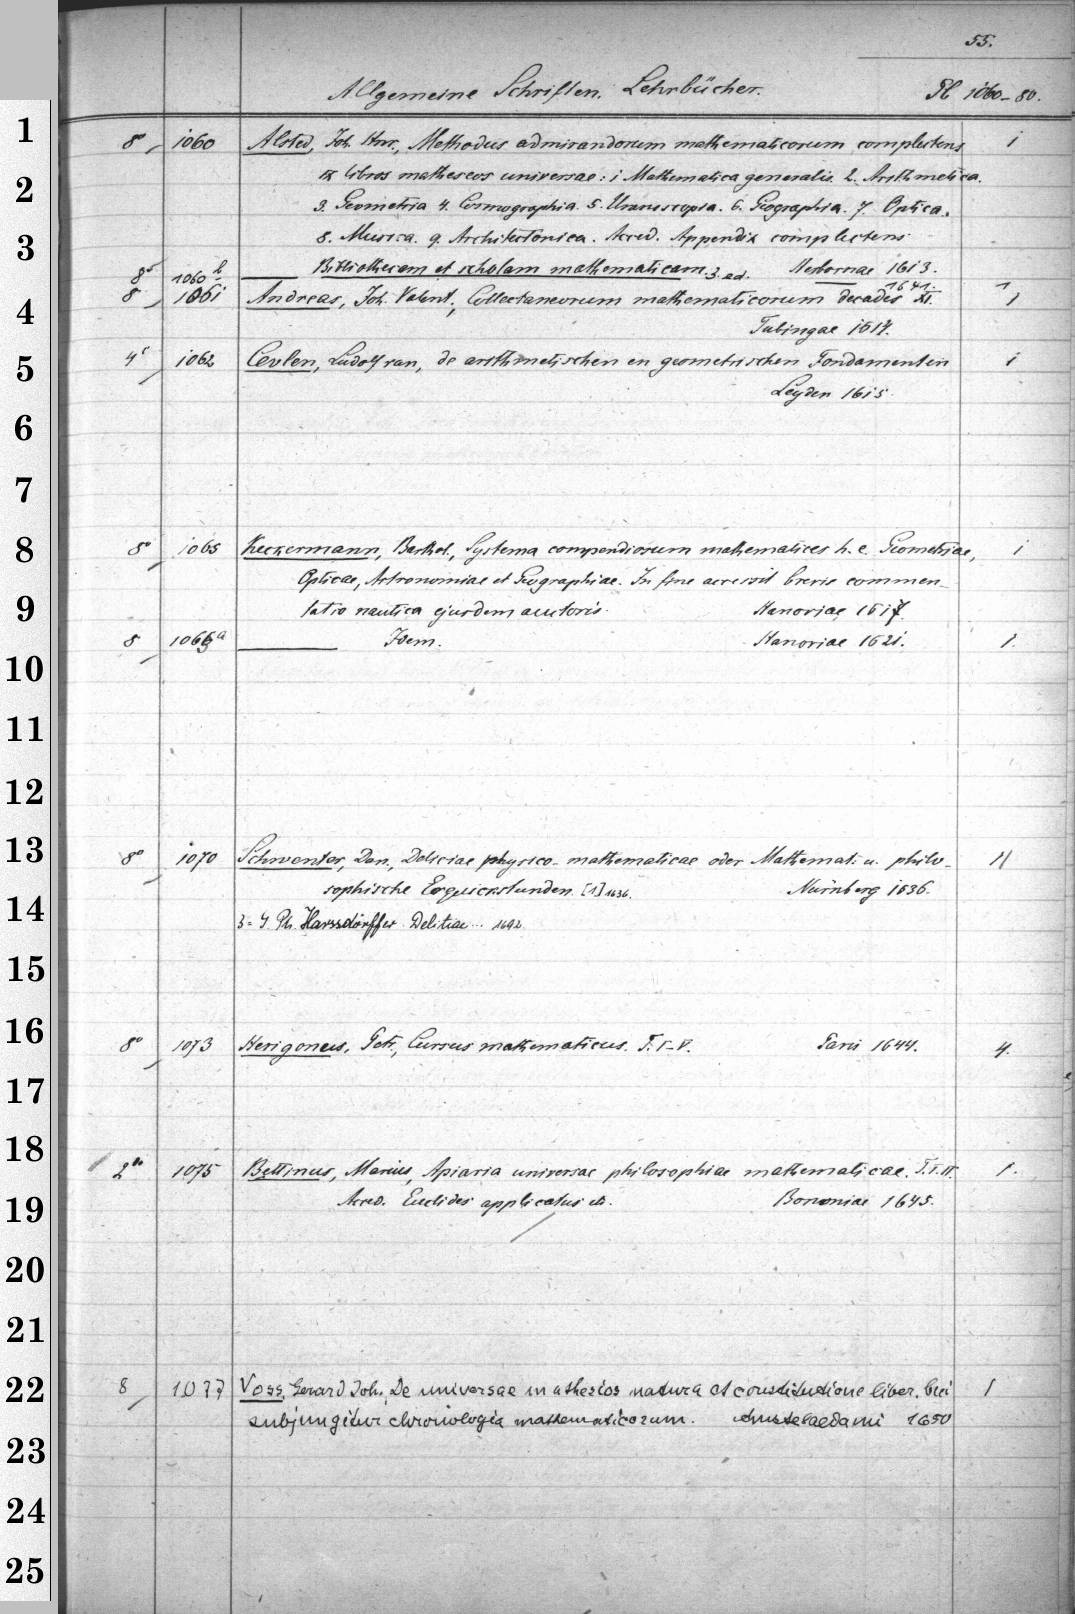 55.
Allgemeine Schriften. Lehrbücher. Pl 1060-80.
8° 1060 Alsted, Joh. Hnr., Methodus admirandorum mathematicorum complectens 1
IX libros matheseos universae: 1 Mathematica generalis. 2. Arithmetica.
3. Geometria 4. Cosmographia. 5. Uranoscopia. 6. Geographia. 7. Optica.
8. Musica. 9. Architectonica. Acced. Appendix complectens
Bibliothecam et scholam mathematicam. Herbornae 1613.
8° 1060 b ——— 3. ed. ——— 1641. 1
8 1061 Andreas, Joh. Valent., Collectaneorum mathematicorum decades XI. 1
Tubingae 1614.
4° 1062 Cevlen, Ludolf van, de arithmetischen en geometrischen Fondamenten 1
Leyden 1615.
8° 1065 Keckermann, Barthol., Systema compendiosum mathematices h. e. Geometriae, 1
Opticae, Astronomiae et Geographiae. In fine accessit brevis commen-
tatio nautica ejusdem auctoris. Hanoviae 1617.
8 1065a ——— Idem. Hanoviae 1621. 1.
8° 1070 Schwenter, Dan., Deliciae physico-mathematicae oder Mathemat. u. philo-
sophische Erquickstunden. [1] 1636. Nürnberg 1636.
3 = G. Ph. Harssdörffer Delitiae ... 1692
8° 1073 Herigoneus, Petr., Cursus mathematicus. T. I-V. Paris 1644. 4.
2° 1075 Bettinus, Marius, Apiaria universae philosophiae mathematicae. T. I. II. 1.
Acced. Euclides applicatus etc. Bononiae 1645.
8 1077 Voss, Gerard Joh., De universae mathesios natura et constitutione liber, cui 1
subjungitur chronologia mathematicorum. Amstelaedami 1650
1
2
3
4
5
6
7
8
9
10
11
12
13
14
15
16
17
18
19
20
21
22
23
24
25